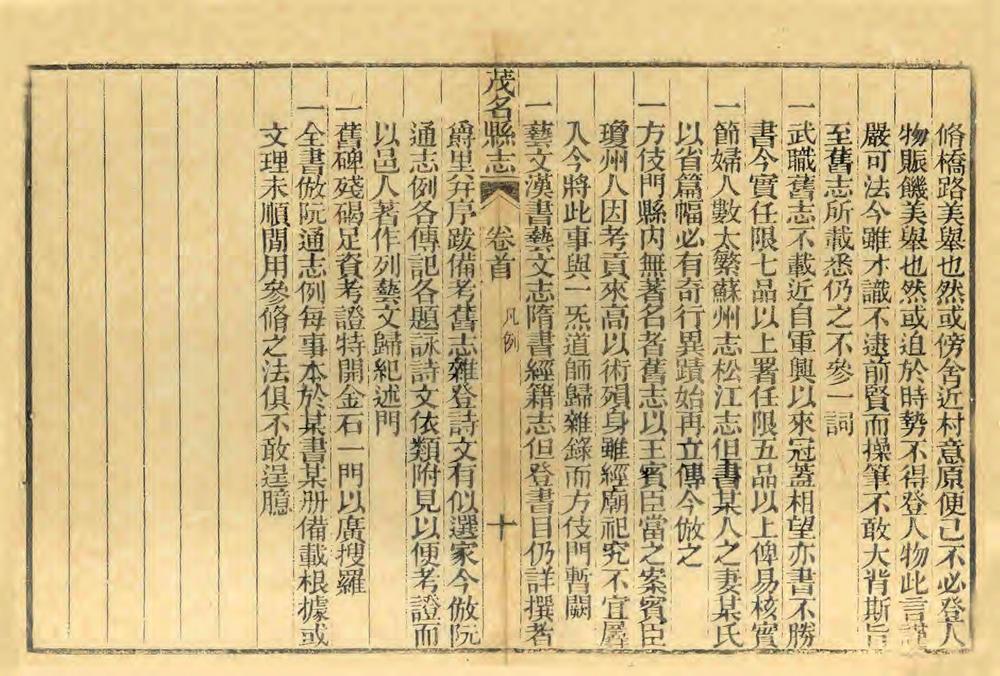 脩橋路美舉也然或傍舍近村意原便己不必登人
物賑饑美舉也然或迫於時勢不得登人物此言謹
嚴可法今雖才識不逮前賢而操筆不敢大背斯旨
至舊志所載悉仍之不參一詞
一武職舊志不載近自軍興以來冠蓋相望亦書不勝
書今實任限七品以上署任限五品以上俾易核實
一節婦人數太繁蘇州志松江志但書某人之妻某氏
以省篇幅必有奇行異蹟始再立傳今倣之
一方伎門縣內無著名者舊志以王賓臣當之案賓臣
瓊州人因考貢來高以術殞身雖經廟祀究不宜羼
入今將此事與一炁道師歸雜錄而方伎門暫闕
一藝文漢書藝文志隋書經籍志但登書目仍詳撰者
茂名縣志 卷首 凡例 十
爵里弁序跋備考舊志雜登詩文有似選家今倣阮
通志例各傳記各題詠詩文依類附見以便考證而
以邑人著作列藝文歸紀述門
一舊碑殘碣足資考證特開金石一門以廣搜羅
一全書倣阮通志例每事本於某書某册備載根據或
文理未順閒用參脩之法俱不敢逞臆